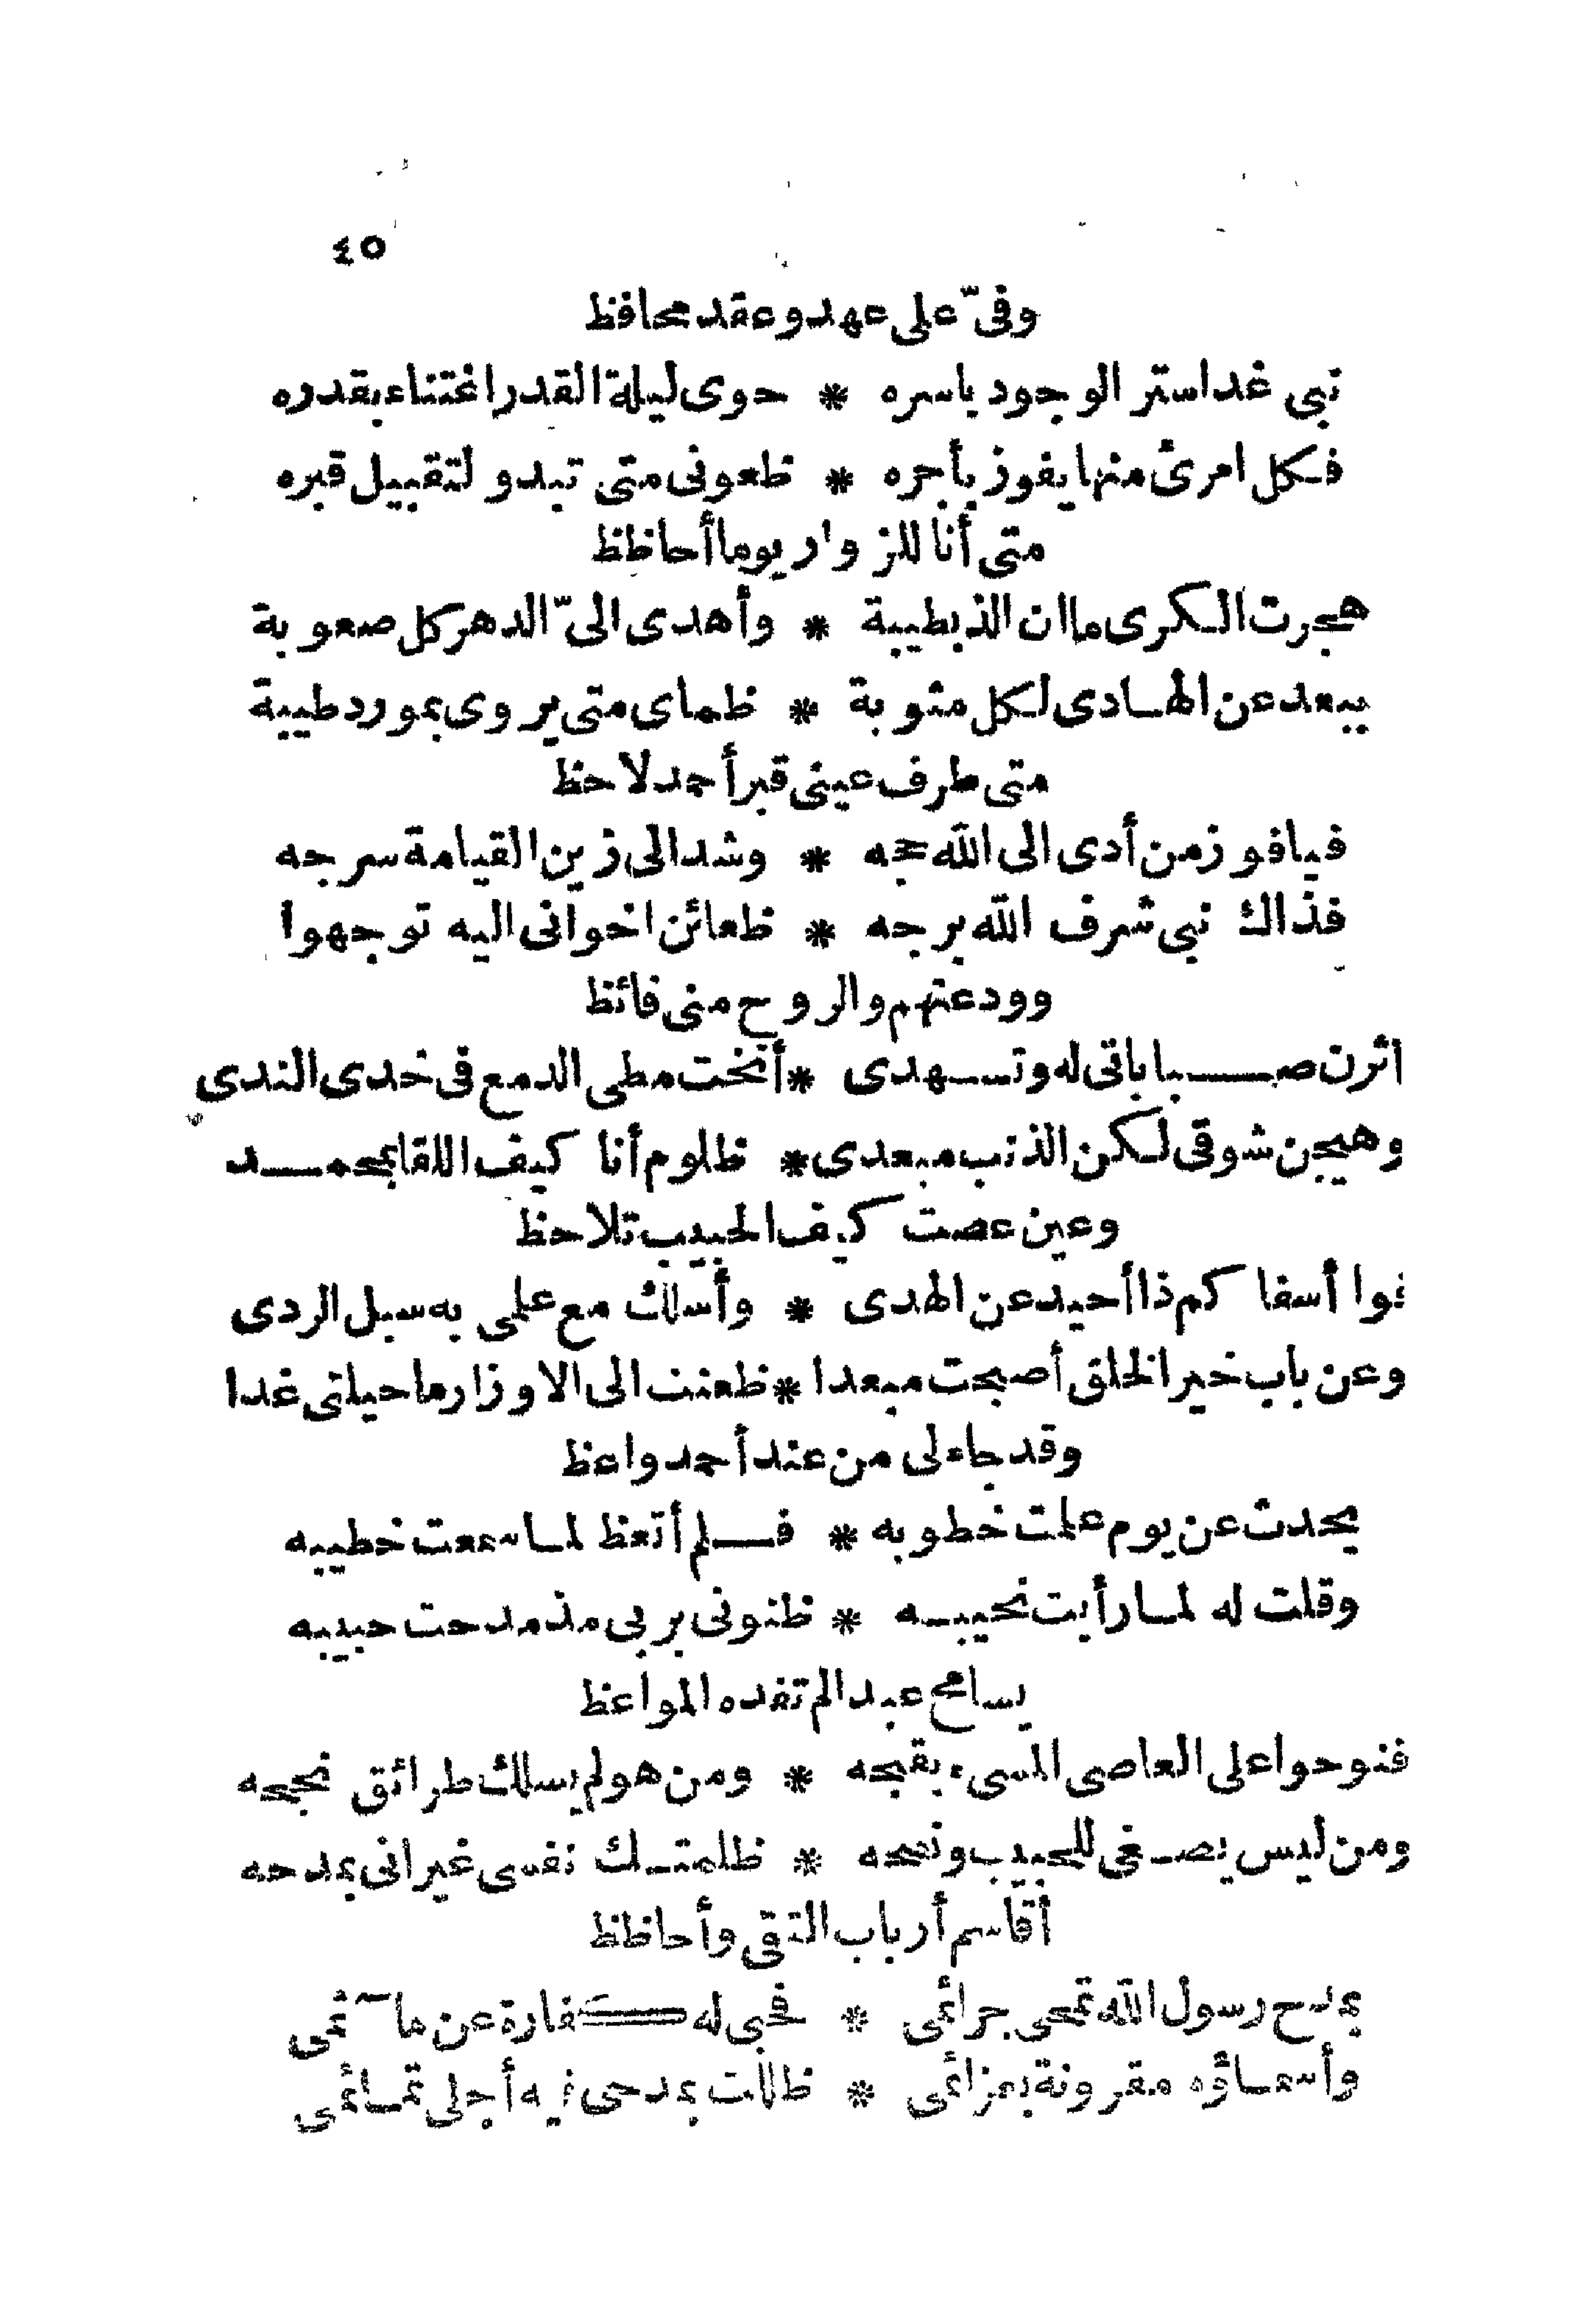 ٤٥
وفىّ على عهد وعقد محافظ
نبى غدا ستر الوجود باسره * حوى ليلة القدر اغتناء بقدره
فكل امرئ منها يفوز بأجره * ظعونى متى تبدو لتقبيل قبره
متى أنا للزوار يوما أحاظظ
هجرت الكرى ما ان الذ بطيبة * وأهدى الىّ الدهر كل صعوبة
ببعد عن الهادى لكل مثوبة * ظماى متى يروى بمورد طيبة
متى طرف عينى قبر أحمد لاحظ
فيا فوز من أدى الى الله حجه * وشد الى زين القيامة سرجه
فذاك نبى شرف الله برجه * ظعائن اخوانى اليه توجهوا
وودعتهم والروح منى فائظ
اثرن صباباتى له وتسهدى * أنخت مطى الدمع فى خدى الندى
وهيجن شوقى لكن الذنب مبعدى * ظلوم أنا كيف اللقا بمحمد
وعين عصت كيف الحبيب تلاحظ
فوا أسفا كم ذا أحيد عن الهدى * وأسلك مع علمى به سبل الردى
وعن باب خير الخلق أصبحت مبعدا * ظعنت الى الاوزار ما حيلتى غدا
وقد جاء لى من عند أحمد واعظ
يحدث عن يوم علمت خطوبه * فلم أتعظ لما سمعت خطيبه
وقلت له لما رأيت نحيبه * ظنونى بربى مذ مدحت حبيبه
يسامح عبدا لم تفده المواعظ
فنوحوا على العاصى المسىء بقبحه * ومن هو لم يسلك طرائق نجحه
ومن ليس يصغى للحبيب ونصحه * ظلمتك نفسى غير انى بمدحه
أقاسم أرباب التقى وأحاظظ
بمدح رسول الله تمحى جرائمى * فحبى له كفارة عن مآثمى
وأسماؤه مقرونة بعزائمى * ظللت بمدحى فيه أجلى تمائمى